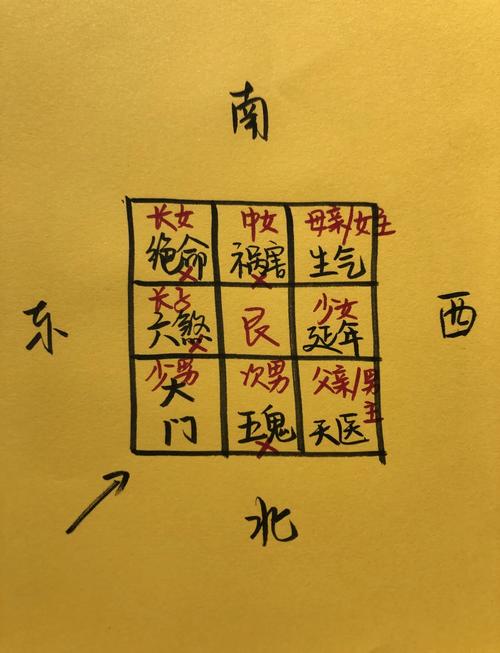 南
长女 中女 母亲/女主
绝命 祸害 生气
长 少女
东 六煞 艮 延年 西
少男 次男 父亲/男
大 主
门 五鬼 天医
北